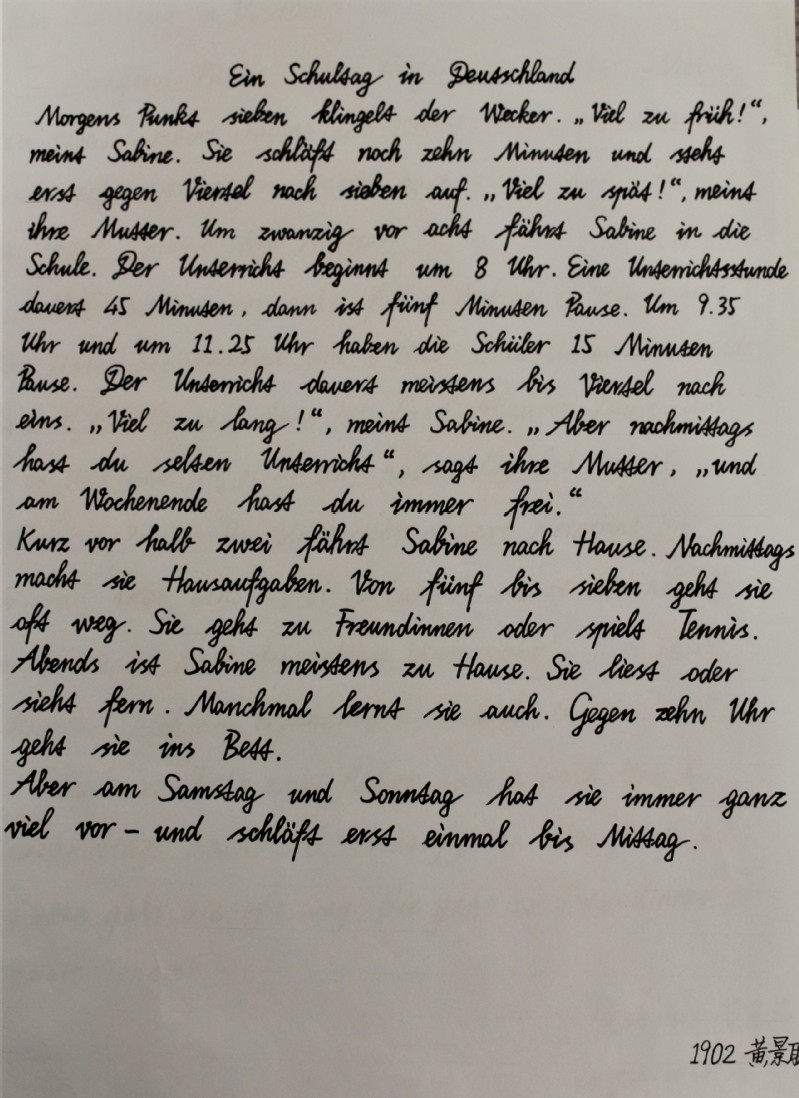 Ein Schultag in Deutschland
Morgens Punkt sieben klingelt der Wecker. „Viel zu früh!“,
meint Sabine. Sie schläft noch zehn Minuten und steht
erst gegen Viertel nach sieben auf. „Viel zu spät!“, meint
ihre Mutter. Um zwanzig vor acht fährt Sabine in die
Schule. Der Unterricht beginnt um 8 Uhr. Eine Unterrichtsstunde
dauert 45 Minuten, dann ist fünf Minuten Pause. Um 9.35
Uhr und um 11.25 Uhr haben die Schüler 15 Minuten
Pause. Der Unterricht dauert meistens bis Viertel nach
eins. „Viel zu lang!“, meint Sabine. „Aber nachmittags
hast du selten Unterricht“, sagt ihre Mutter, „und
am Wochenende hast du immer frei.“
Kurz vor halb zwei fährt Sabine nach Hause. Nachmittags
macht sie Hausaufgaben. Von fünf bis sieben geht sie
oft weg. Sie geht zu Freundinnen oder spielt Tennis.
Abends ist Sabine meistens zu Hause. Sie liest oder
sieht fern. Manchmal lernt sie auch. Gegen zehn Uhr
geht sie ins Bett.
Aber am Samstag und Sonntag hat sie immer ganz
viel vor – und schläft erst einmal bis Mittag.
1902 黄景